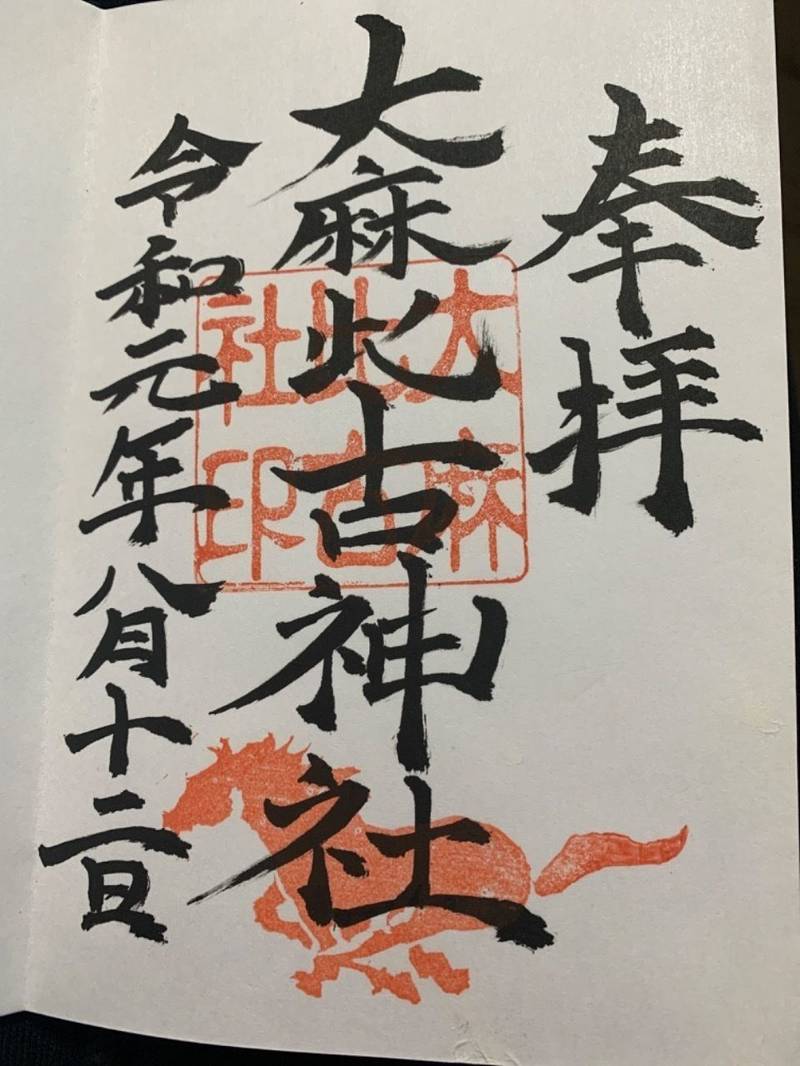 奉拝
大麻比古神社
令和元年八月十二日
大麻
比古
社印